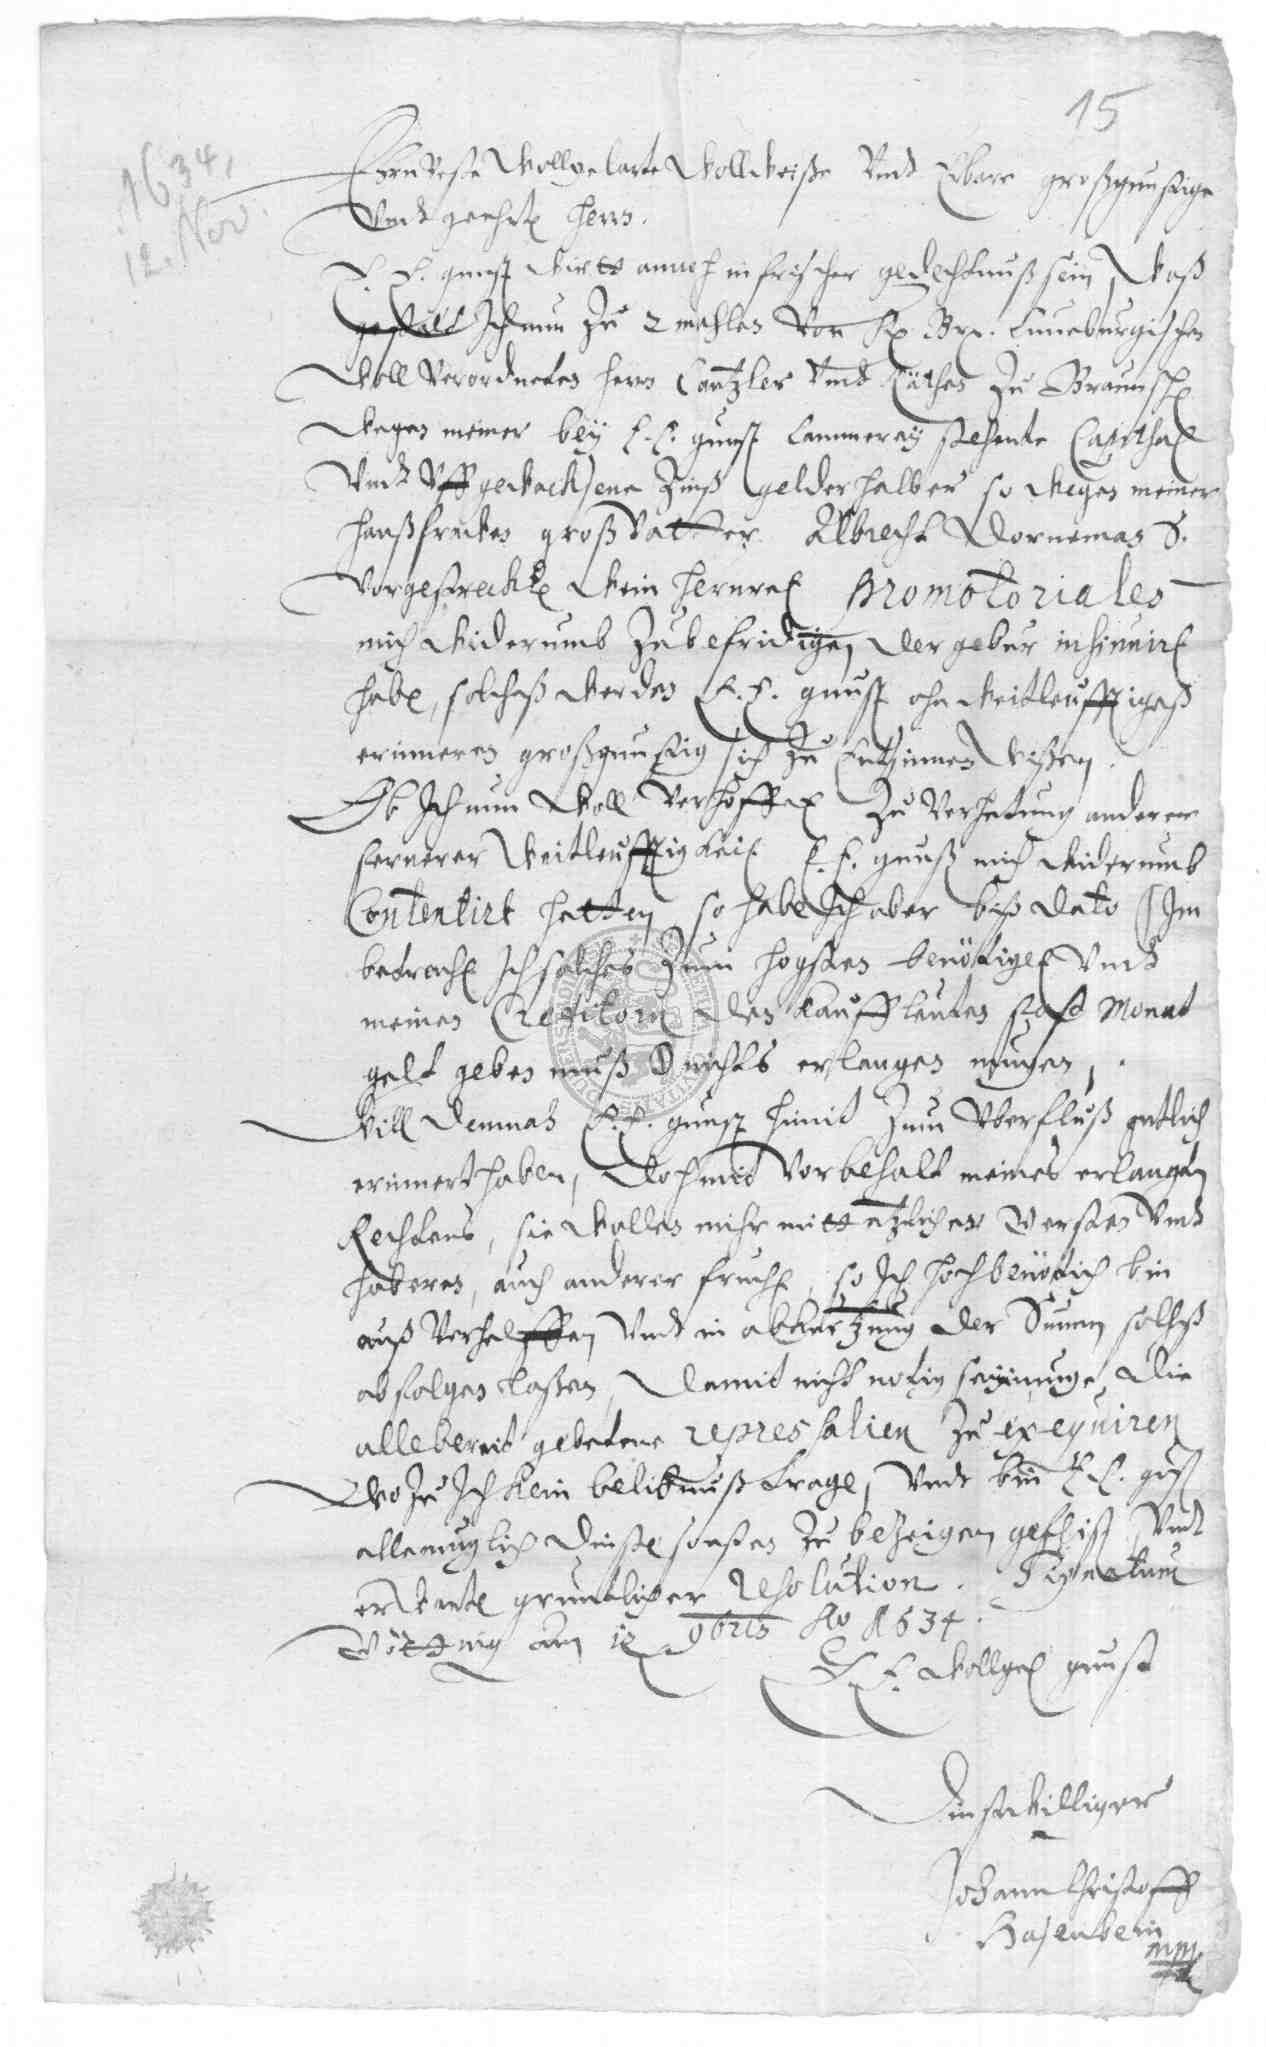 15
1634,
12. Nov.
Ernveste Wollgelarte Wollweiße Vnd Erbare großgunstige
Vnd geehrte Herrn.
E. E. gunst wirtt annoch in frischer gedechtnuß sein, Waß
gestalt Ich nun Zu 2 mahlen Von Luneburgischen
Woll Verordneten Herrn Cantzler Vnd Räthen Zu Braunsch
Wegen meiner bey E. E. gunst Cammerey stehente Capithal
Vnd Vffgewachsene Zinß gelder halber so wegen meiner
Haußfrawen großVatter Albrecht Dorneman S.
Vorgestreckt promotoriales
mich widerumb Zubefridigen, der gebur insinuirt
habe, solchaß werden E. E. gunst ohn weitleufftigaß
erinneren großgunstig sich Zu Entsinnen wißen.
Ob Ich nun Woll Verhoffet Zu Verhetung anderer
fernerer Weitleufftigkeit E. E. gunst mich widerumb
Contentirt hetten, so habe Ich aber biß dato (Im
betracht Ich solches Zum hogsten benötiget Vnd
meinen Creditorn den Kauffleuten Monat
gelt geben muß) nichts erlangen mugen,
Will demnach E. E. gunst himit Zum Vberfluß entlich
erinnert haben, doch mit Vorbehalt meines erlangten
Rechtens, sie wollen mihr mitt etzlichen Gersten Vnd
Haberen, auch anderer frucht, so Ich hochbenötich bin
auß Verhelffen, Vnd in abkurtzung der Summ solchß
abfolgen laßen, damit nicht notig sey muge die
allebereit gebetene repressalien Zu exequiren
Wo Zu Ich kein beliebnuß trage, Vnd bin E. E. gust
allemuglich dinste sonsten Zu bezeigen gefliss Vnd
erwarte gruntlicher Resolution. Signatum
am 12 9bris Ao 1634.
E. E. Wollge gunst
Dinstwilliger
Johann Christoff
Hasenbein
mp